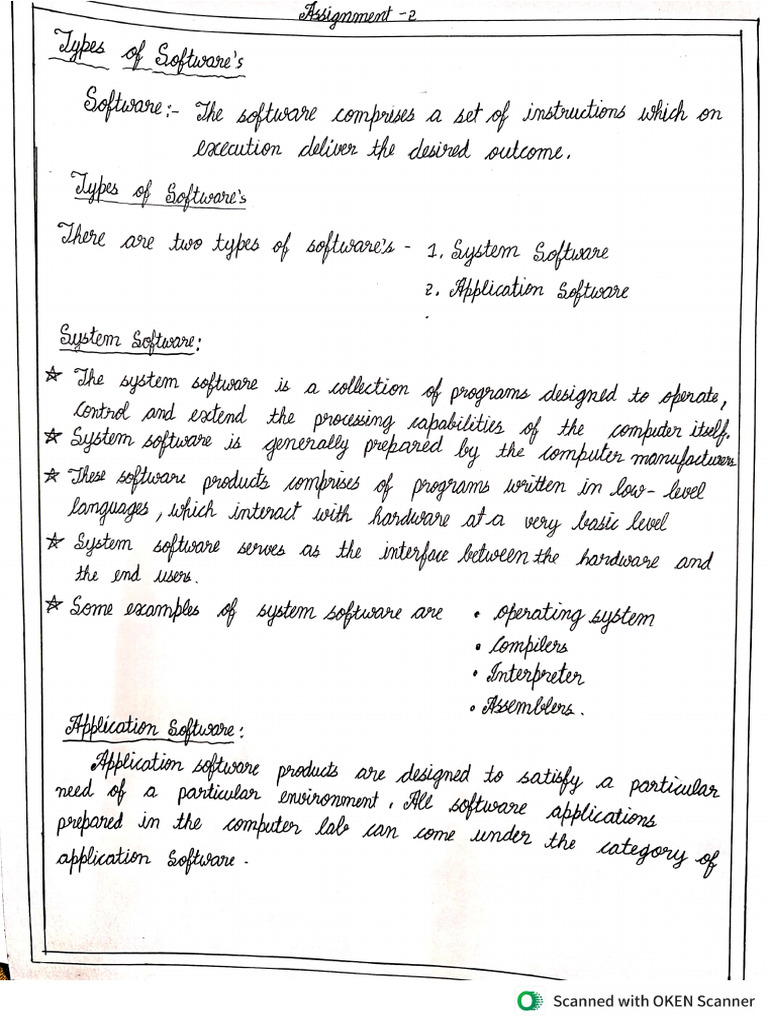 Assignment -2
Types of Software's
Software:- The software comprises a set of instructions which on
execution deliver the desired outcome.
Types of Software's
There are two types of software's - 1. System Software
2. Application Software
System Software:
☆ The system software is a collection of programs designed to operate,
control and extend the processing capabilities of the computer itself.
☆ System software is generally prepared by the computer manufacturers
☆ These software products comprises of programs written in low-level
languages, which interact with hardware at a very basic level
☆ System software serves as the interface between the hardware and
the end users.
☆ Some examples of system software are • operating system
• Compilers
• Interpreter
• Assemblers.
Application Software:
Application software products are designed to satisfy a particular
need of a particular environment. All software applications
prepared in the computer lab can come under the category of
application Software.
Scanned with OKEN Scanner